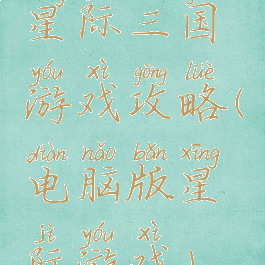 星际三国
yóu xì gōng lüè
游戏攻略(
diàn nǎo bǎn xīng
电脑版星
jì yóu xì
际游戏)